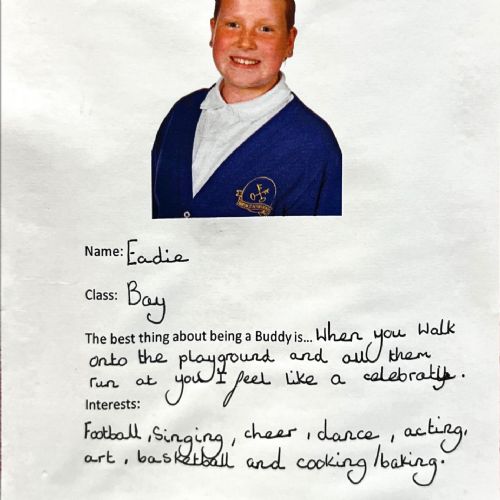 Name: Eadie
Class: Bay
The best thing about being a Buddy is... When you walk
onto the playground and all them
run at you I feel like a celebraty.
Interests:
Football, Singing, cheer, dance, acting,
art, basketball and cooking/baking.